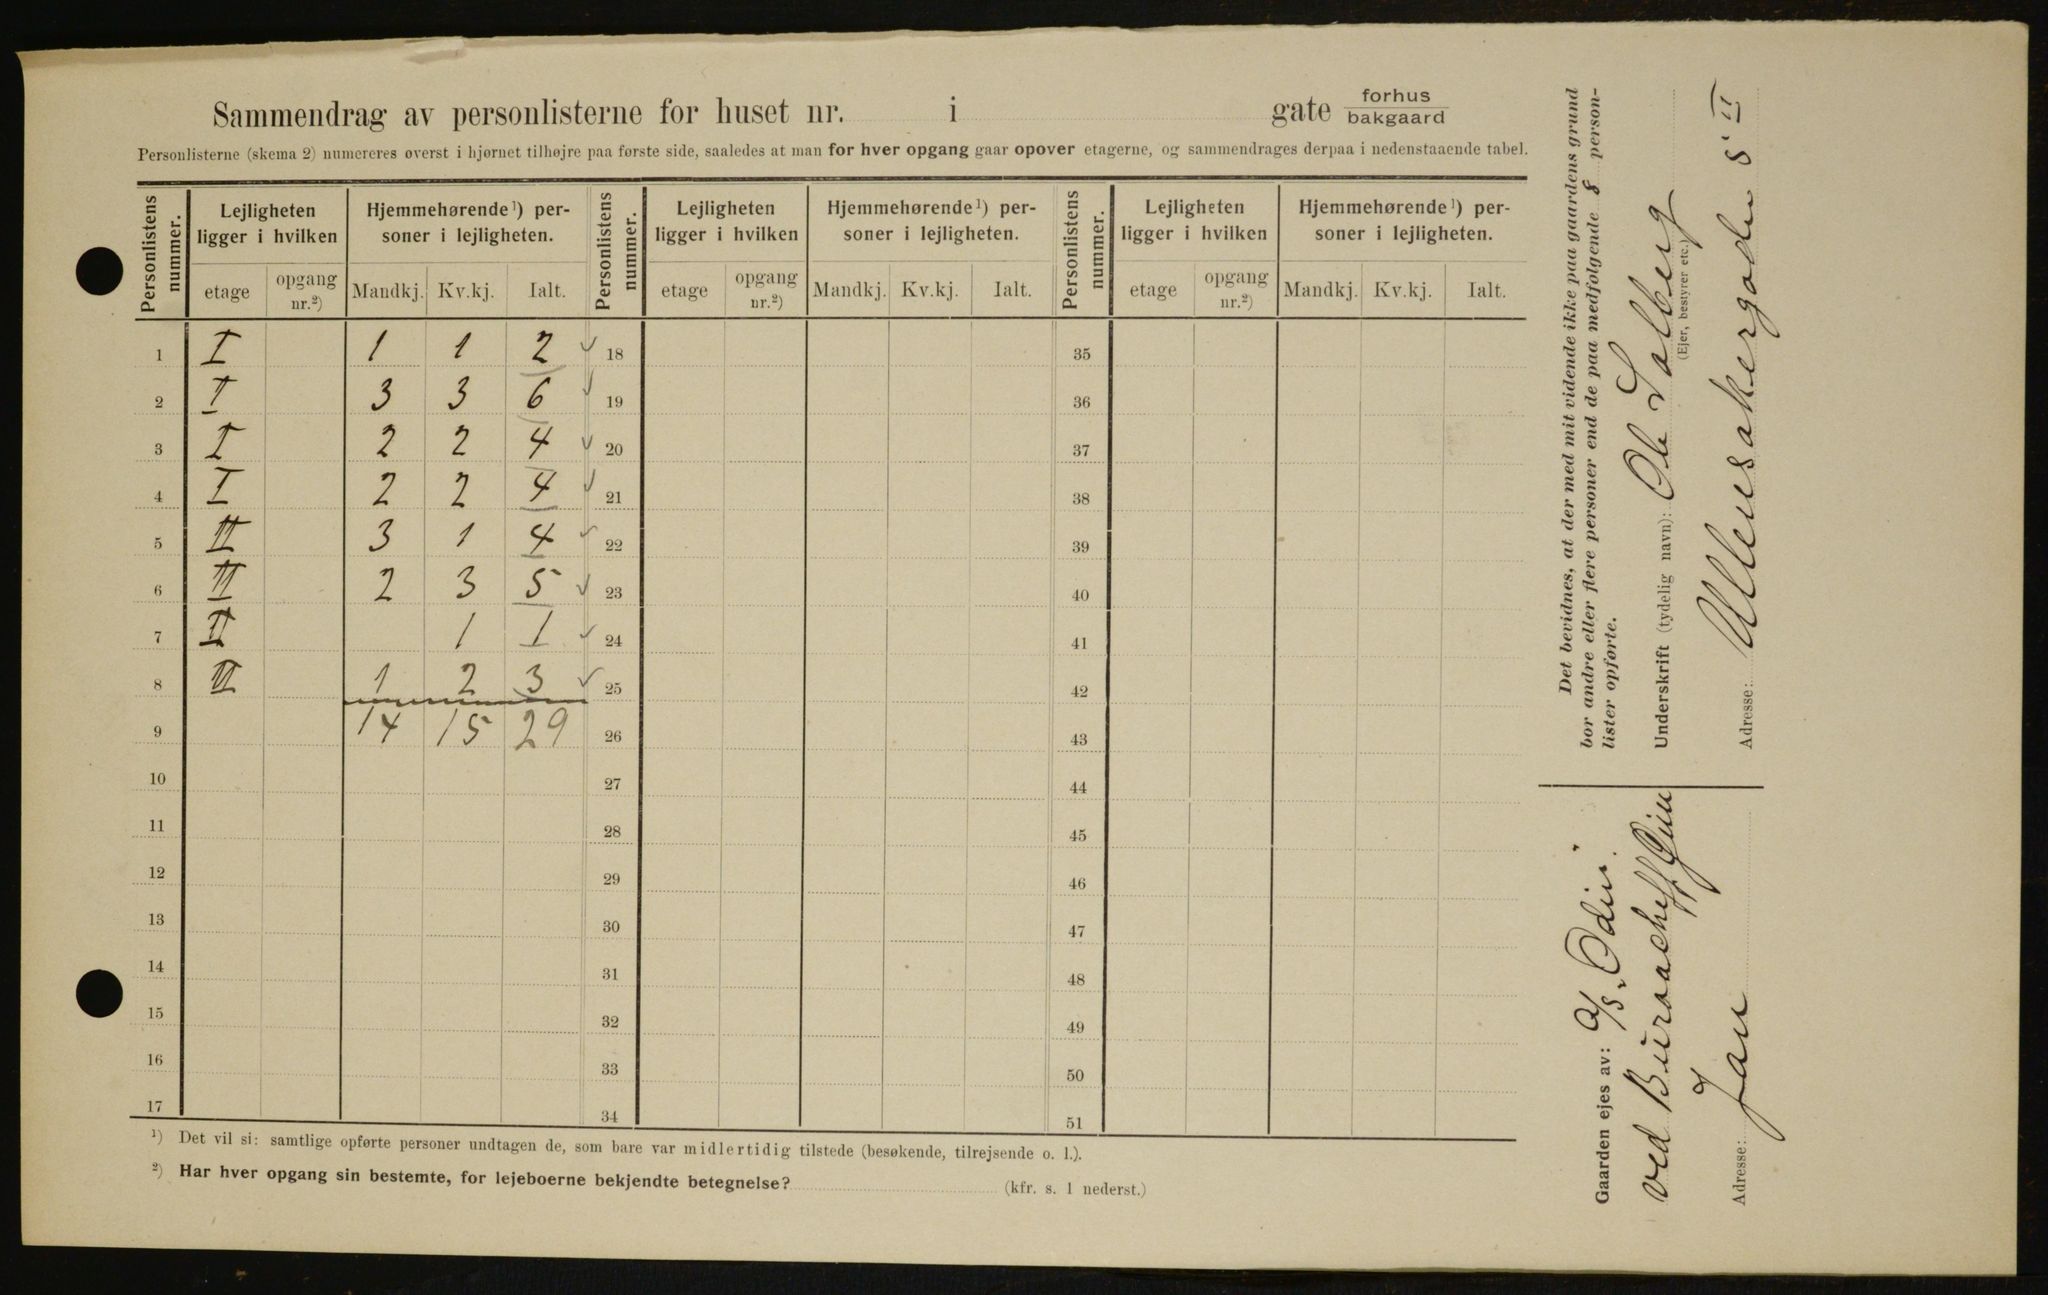 Sammendrag av personlisterne for huset nr. i gate forhus bakgaard
Personlisterne (skema 2) numereres øverst i hjørnet tilhøjre paa første side, saaledes at man for hver opgang gaar opover etagerne, og sammendrages derpaa i nedenstaaende tabel.
Personlistens nummer. Lejligheten ligger i hvilken Hjemmehørende 1) personer i lejligheten. Personlistens nummer. Lejligheten ligger i hvilken Hjemmehørende 1) personer i lejligheten. Personlistens nummer. Lejligheten ligger i hvilken Hjemmehørende 1) personer i lejligheten.
etage opgang nr.2) Mandkj. Kv.kj. Ialt. etage opgang nr.2) Mandkj. Kv.kj. Ialt. etage opgang nr.2) Mandkj. Kv.kj. Ialt.
1 I 1 1 2 ✓ 18 35
2 I 3 3 6 ✓ 19 36
3 I 2 2 4 ✓ 20 37
4 I 2 2 4 ✓ 21 38
5 II 3 1 4 ✓ 22 39
6 II 2 3 5 ✓ 23 40
7 II 1 1 ✓ 24 41
8 II 1 2 3 ✓ 25 42
9 14 15 29 26 43
10 27 44
11 28 45
12 29 46
13 30 47
14 31 48
15 32 49
16 33 50
17 34 51
1) Det vil si: samtlige opførte personer undtagen de, som bare var midlertidig tilstede (besøkende, tilrejsende o. l.).
2) Har hver opgang sin bestemte, for lejeboerne bekjendte betegnelse? (kfr. s. 1 nederst.)
Det bevidnes, at der med mit vidende ikke paa gaardens grund
bor andre eller flere personer end de paa medfølgende 8 person-
lister opførte.
Underskrift (tydelig navn): Ole Solberg
(Ejer, bestyrer etc.)
Adresse: Ullensakergaden 5 II
Gaarden ejes av: A/S "Odin"
ved Buracheff
Adresse: